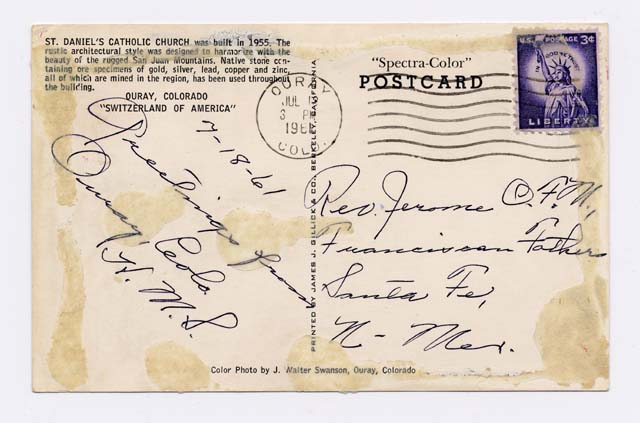 ST. DANIEL'S CATHOLIC CHURCH was built in 1955. The
rustic architectural style was designed to harmonize with the
beauty of the rugged San Juan Mountains. Native stone con-
taining ore specimens of gold, silver, lead, copper and zinc,
all of which are mined in the region, has been used throughout
the building.
OURAY, COLORADO
"SWITZERLAND OF AMERICA"
7-18-61
Greetings from
Ouray, Colo.
H. M. S.
OURAY
JUL
3 PM
COLO.
"Spectra-Color"
POSTCARD
U.S. POSTAGE 3¢
IN GOD WE TRUST
LIBERTY
PRINTED BY JAMES J. GILLICK & CO., BERKELEY, CALIFORNIA
Rev. Jerome O.F.M.,
Franciscan Fathers
Santa Fe,
N- Mex.
Color Photo by J. Walter Swanson, Ouray, Colorado